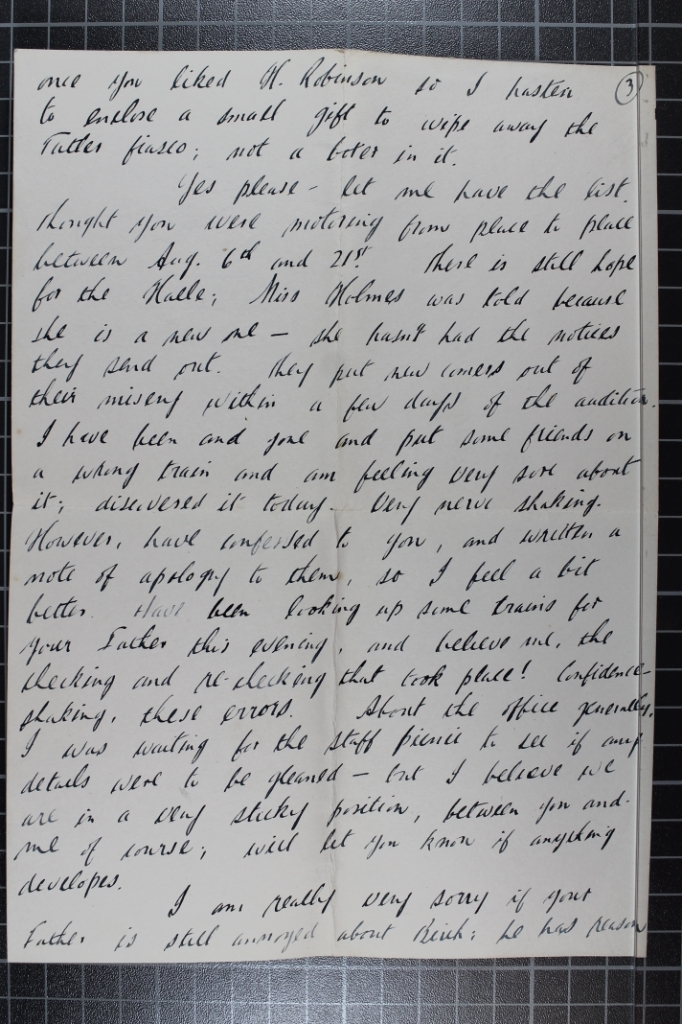 ③
once you liked H. Robinson so I hasten
to enclose a small gift to wipe away the
Tatler fiasco; not a boter in it.
Yes please - let me have the list.
thought you were motoring from place to place
between Aug. 6th and 21st. There is still hope
for the Halle; Miss Holmes was told because
she is a new one - she hasn't had the notices
they send out. They put new comers out of
their misery within a few days of the audition.
I have been and gone and put some friends on
a wrong train and am feeling very sore about
it; discovered it today. Very nerve shaking.
However, have confessed to you, and written a
note of apology to them, so I feel a bit
better. Have been looking up some trains for
your Father this evening, and believe me, the
checking and re-checking that took place! Confidence-
shaking, these errors. About the office generally,
I was waiting for the staff picnic to see if any
details were to be gleaned - but I believe we
are in a very sticky position, between you and
me of course; will let you know if anything
developes.
I am really very sorry if your
Father is still annoyed about ; he has reason